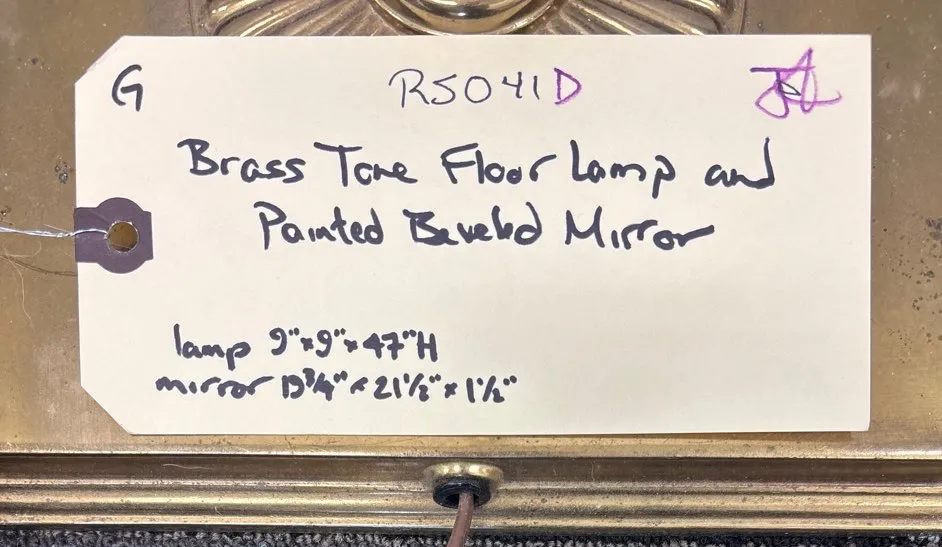 G R5041D
Brass Tone Floor Lamp and
Painted Beveled Mirror
lamp 9"x9"x47"H
mirror 19¾" x 21½" x 1½"